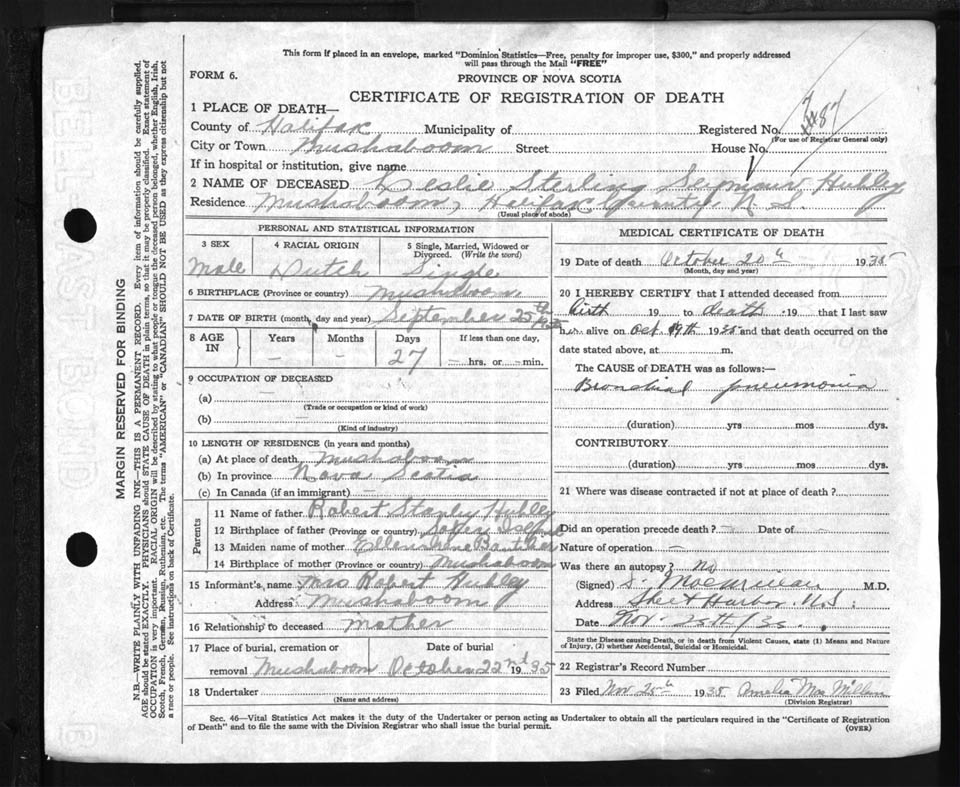 This form if placed in an envelope, marked "Dominion Statistics—Free, penalty for improper use, $300," and properly addressed
will pass through the Mail "FREE"
FORM 6.
PROVINCE OF NOVA SCOTIA
CERTIFICATE OF REGISTRATION OF DEATH
1 PLACE OF DEATH—
County of Halifax Municipality of Registered No.
(For use of Registrar General only)
City or Town Mushaboom Street House No.
If in hospital or institution, give name
2 NAME OF DECEASED Leslie Sterling Seymour Hubley
Residence Mushaboom, Halifax County N S.
(Usual place of abode)
PERSONAL AND STATISTICAL INFORMATION
3 SEX 4 RACIAL ORIGIN 5 Single, Married, Widowed or Divorced. (Write the word)
Male Dutch Single
6 BIRTHPLACE (Province or country) Mushaboom
7 DATE OF BIRTH (month, day and year) September 25th
8 AGE IN Years Months Days If less than one day,
— — 27 — hrs. or — min.
9 OCCUPATION OF DECEASED
(a) —
(Trade or occupation or kind of work)
(b) —
(Kind of industry)
10 LENGTH OF RESIDENCE (in years and months)
(a) At place of death Mushaboom
(b) In province Nova Scotia
(c) In Canada (if an immigrant) —
Parents
11 Name of father Robert Stanley Hubley
12 Birthplace of father (Province or country)
13 Maiden name of mother Ellen Irene
14 Birthplace of mother (Province or country) Mushaboom
15 Informant's name Mrs Robert Hubley
Address Mushaboom
16 Relationship to deceased mother
17 Place of burial, cremation or removal Mushaboom Date of burial October 22nd 1935
18 Undertaker
(Name and address)
MEDICAL CERTIFICATE OF DEATH
19 Date of death October 20th 1935
(Month, day and year)
20 I HEREBY CERTIFY that I attended deceased from
Birth 19 to death 19 that I last saw
h alive on Oct 19th 1935 and that death occurred on the
date stated above, at m.
The CAUSE of DEATH was as follows:—
Bronchial pneumonia
(duration) yrs mos dys.
CONTRIBUTORY
(duration) yrs mos dys.
21 Where was disease contracted if not at place of death?
Did an operation precede death? — Date of —
Nature of operation —
Was there an autopsy? no
(Signed) M.D.
Address Sheet Harbor N.S
Date Nov. 25th/35
State the Disease causing Death, or in death from Violent Causes, state (1) Means and Nature
of Injury, (2) whether Accidental, Suicidal or Homicidal.
22 Registrar's Record Number
23 Filed Nov 25th 1935 Amelia MacMillan
(Division Registrar)
Sec. 46—Vital Statistics Act makes it the duty of the Undertaker or person acting as Undertaker to obtain all the particulars required in the "Certificate of Registration
of Death" and to file the same with the Division Registrar who shall issue the burial permit.
(OVER)
MARGIN RESERVED FOR BINDING
N.B.—WRITE PLAINLY WITH UNFADING INK—THIS IS A PERMANENT RECORD. Every item of information should be carefully supplied.
AGE should be stated EXACTLY. PHYSICIANS should STATE CAUSE OF DEATH in plain terms, so that it may be properly classified. Exact statement of
OCCUPATION is very important. RACIAL ORIGIN will be described by stating to what people or tongue the deceased person belonged, whether English, Irish,
Scotch, French, German, Russian, Ruthenian, etc. The terms "AMERICAN" or "CANADIAN" SHOULD NOT BE USED as they express citizenship but not
a race or people. See instructions on back of Certificate.